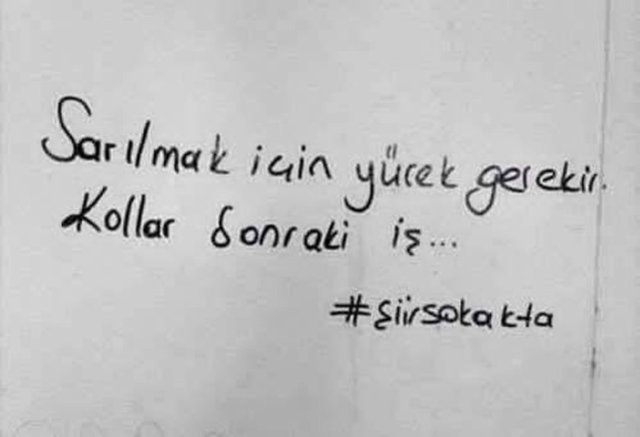 Sarılmak için yürek gerekir.
Kollar sonraki iş...
#şiirsokakta